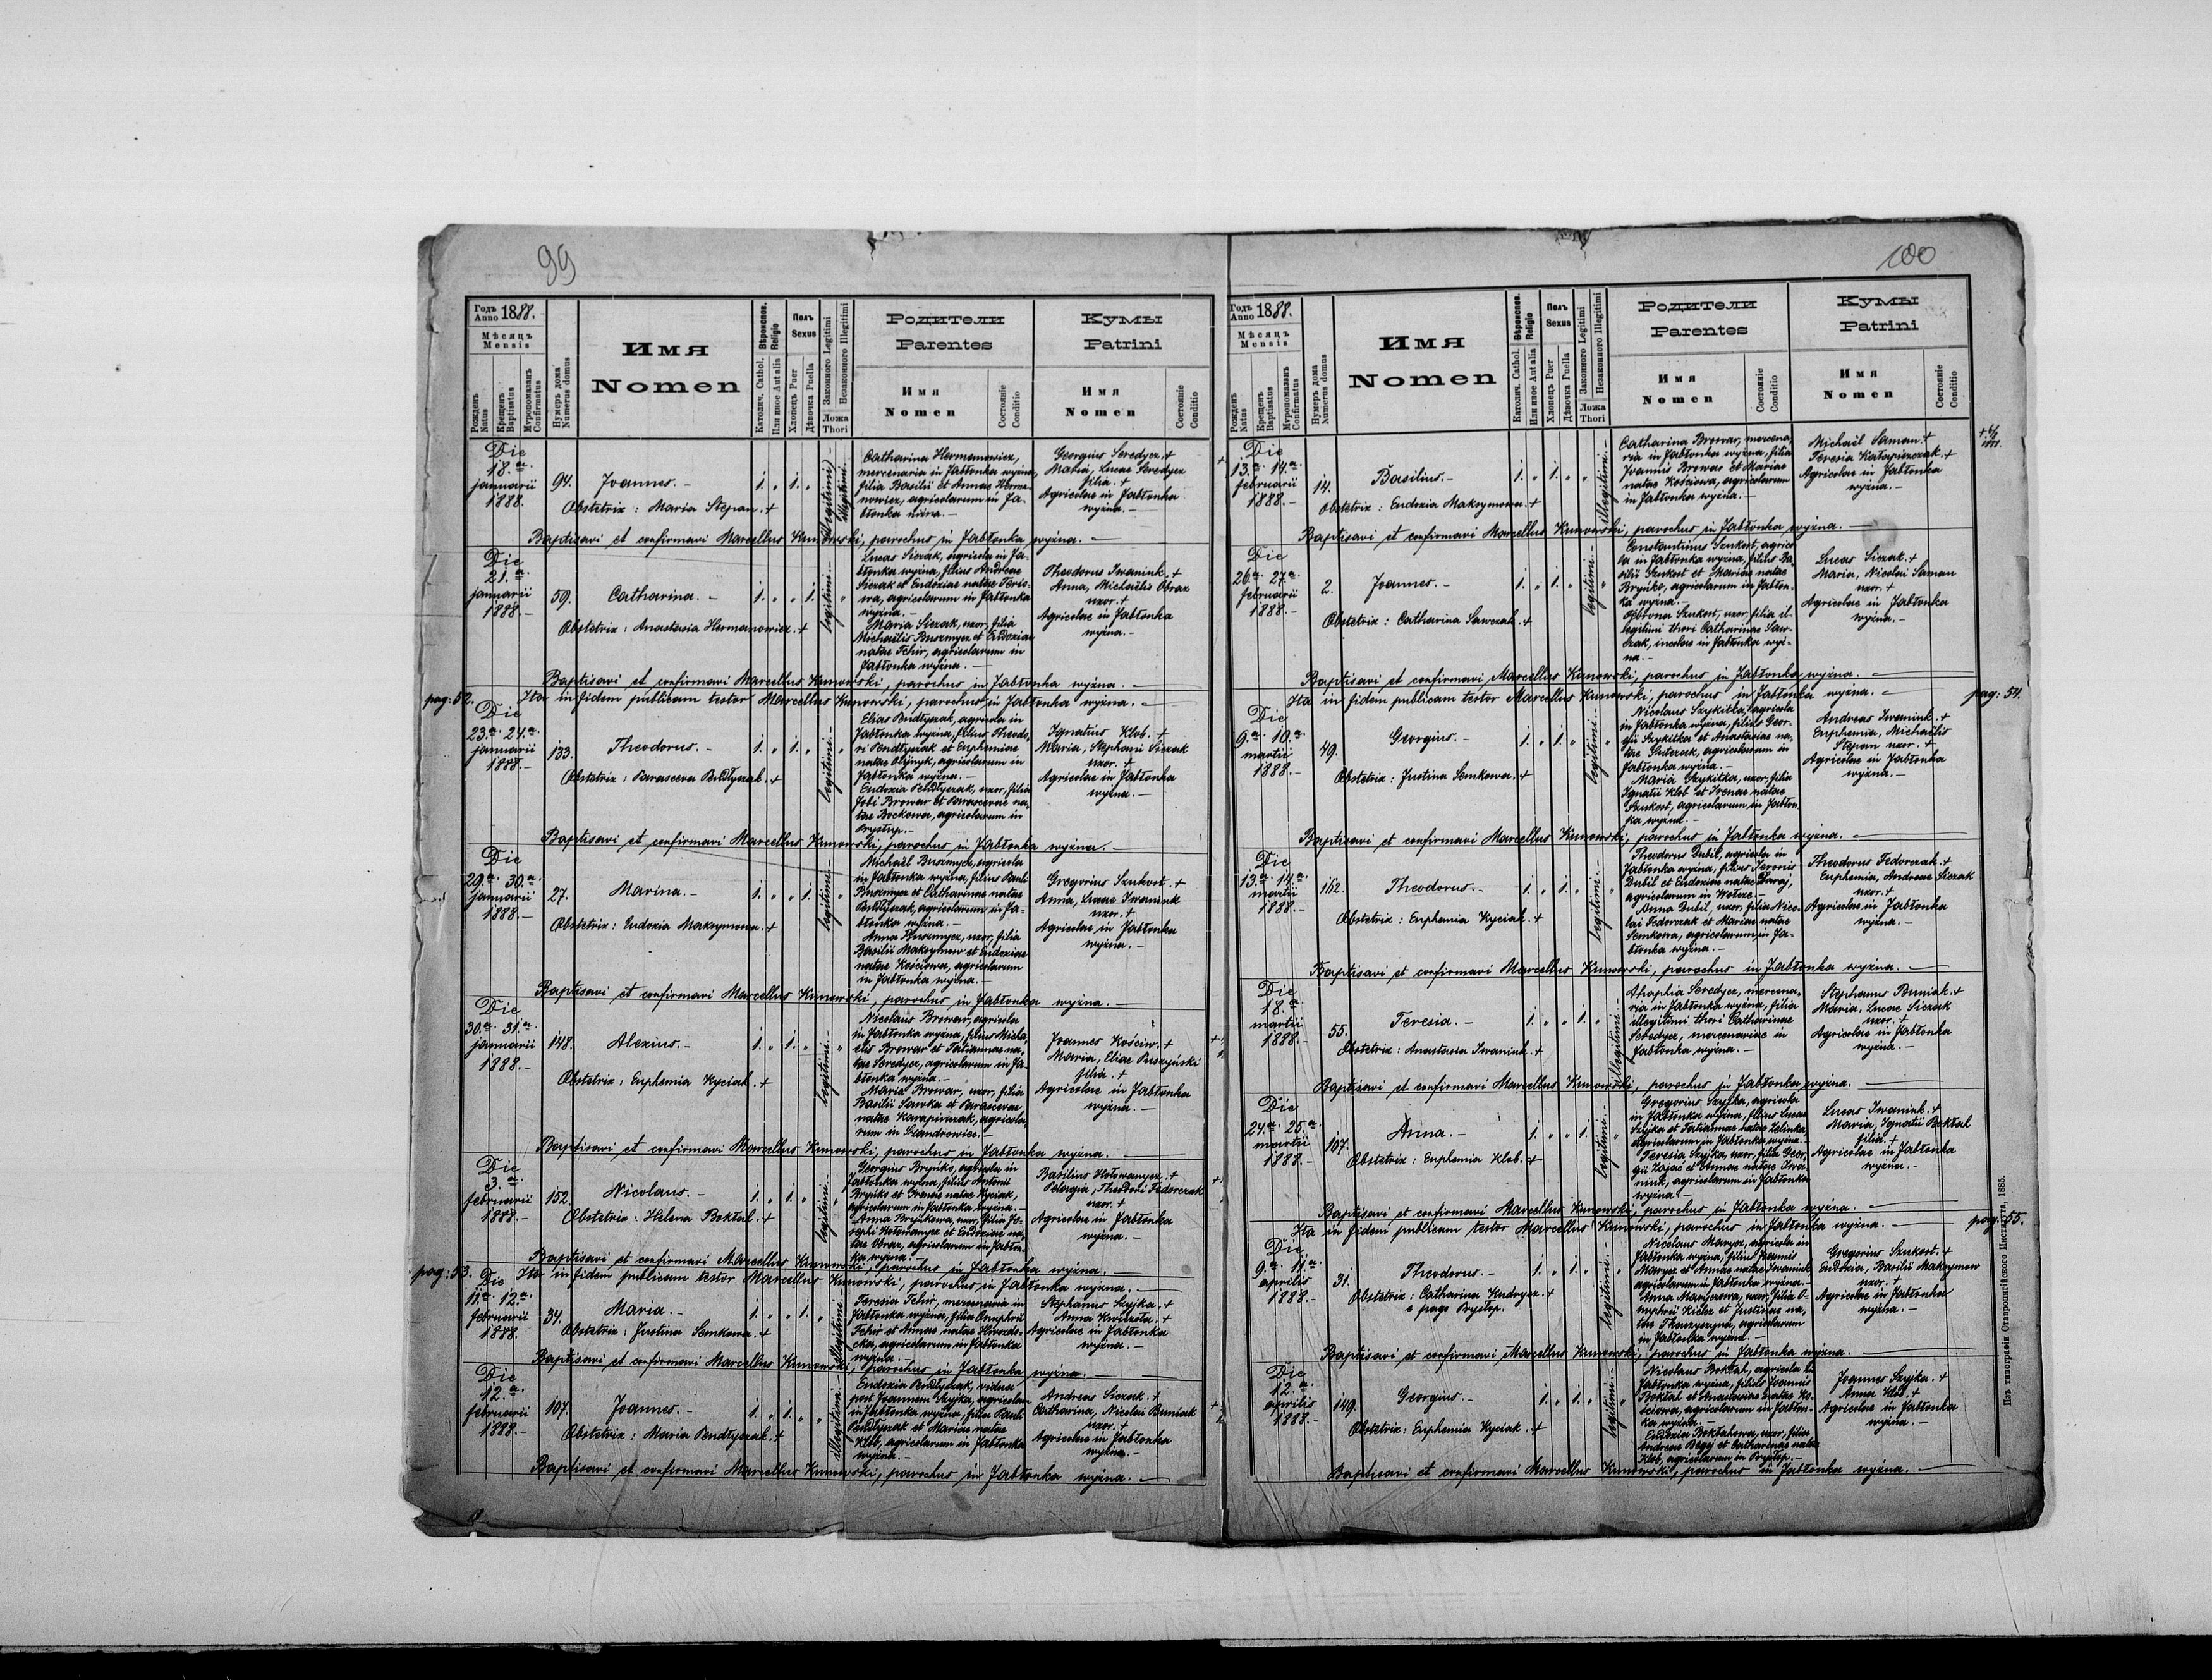 99
Годъ Anno 1888.
Мѣсяцъ Mensis
Рожденъ Natus
Крещенъ Baptisatus
Мѵропомазанъ Confirmatus
Нумеръ дома Numerus domus
Имя
Nomen
Вѣроиспов. Religio
Католич. Cathol.
Или иное Aut alia
Полъ Sexus
Хлопецъ Puer
Дѣвочка Puella
Законного Legitimi
Незаконного Illegitimi
Ложа Thori
Родители
Parentes
Имя
Nomen
Состояніе Conditio
Кумы
Patrini
Имя
Nomen
Состояніе Conditio
Die 18.a januarii 1888.
94.
Joannes. -
1. „ 1. „
illegitimi. -
Catharina Hermanowicz,
mercenaria in Jabłonka wyżna,
filia Basilii et Annae Herma-
nowicz, agricolarum in Ja-
błonka niżna. -
Georgius Seredycz +
Maria, Lucae Seredycz
filia. +
Agricolae in Jabłonka
wyżna. -
Obstetrix: Maria Stepan. +
Baptisavi et confirmavi Marcellus Kunowski, parochus in Jabłonka wyżna. -
Die 21.a januarii 1888. -
59.
Catharina. -
1. „ „ 1.
legitimi. - „
Lucas Siczak, agricola in Ja-
błonka wyżna, filius Andreae
Siczak et Eudoxiae natae
agricolarum in Jabłonka
wyżna. -
Maria Siczak, uxor, filia
Michaëlis Buszmycz et Eudoxiae
natae Fehir, agricolarum in
Jabłonka wyżna. -
Theodorus Iwaniuk. +
Anna, Michaëlis Obraz
uxor. +
Agricolae in Jabłonka
wyżna. -
Obstetrix: Anastasia Hermanowicz. +
Baptisavi et confirmavi Marcellus Kunowski, parochus in Jabłonka wyżna. -
pag: 52. Ita in fidem publicam testor Marcellus Kunowski, parochus in Jabłonka wyżna. -
Die 23.a 24.a januarii 1888. -
133.
Theodorus. -
1. „ 1. „
legitimi. - „
Elias Pendłyszak, agricola in
Jabłonka wyżna, filius Theodo-
ri Pendłyszak et Euphemiae
natae Olijnyk, agricolarum in
Jabłonka wyżna. -
Eudoxia Pendłyszak, uxor, filia
Jobi Browar et Parascevae na-
tae Bockowa, agricolarum in
Prysłup. -
Ignatius Klob. +
Maria, Stephani Siczak
uxor. +
Agricolae in Jabłonka
wyżna. -
Obstetrix: Parasceva Pendłyszak. +
Baptisavi et confirmavi Marcellus Kunowski, parochus in Jabłonka wyżna. -
Die 29.a 30.a januarii 1888. -
27.
Marina. -
1. „ „ 1.
legitimi. - „
Michaël Buszmycz, agricola
in Jabłonka wyżna, filius Pauli
Buszmycz et Catharinae natae
Pendłyszak, agricolarum in Ja-
błonka wyżna. -
Anna Buszmycz, uxor, filia
Basilii Maksymow et Eudoxiae
natae Kościowa, agricolarum
in Jabłonka wyżna. -
Gregorius Szukost. +
Anna, Lucae Iwaniuk
uxor. +
Agricolae in Jabłonka
wyżna. -
Obstetrix: Eudoxia Maksymowa. +
Baptisavi et confirmavi Marcellus Kunowski, parochus in Jabłonka wyżna. -
Die 30.a 31.a januarii 1888. -
148.
Alexius. -
1. „ 1. „
legitimi. - „
Nicolaus Browar, agricola
in Jabłonka wyżna, filius Micha-
ëlis Browar et Tatiannae na-
tae Seredycz, agricolarum in Ja-
błonka wyżna. -
Maria Browar, uxor, filia
Basilii Sawka et Parascevae
natae Karapinczak, agricola-
rum in Szandrowiec. -
Joannes Kościw. +
Maria, Eliae Puszyński
filia. +
Agricolae in Jabłonka
wyżna. -
Obstetrix: Euphemia Kyciak. +
Baptisavi et confirmavi Marcellus Kunowski, parochus in Jabłonka wyżna. -
Die 3.a februarii 1888. -
152.
Nicolaus. -
1. „ 1. „
legitimi. - „
Georgius Bryńko, agricola in
Jabłonka wyżna, filius Antonii
Bryńko et Irenae natae Kyciak,
agricolarum in Jabłonka wyżna. -
Anna Bryńkowa, uxor, filia Jo-
sephi Hołowanycz et Eudoxiae na-
tae Obraz, agricolarum in Jabłon-
ka wyżna. -
Basilius Hołowanycz. +
Pelagia, Theodori Fedorczak
uxor. +
Agricolae in Jabłonka
wyżna. -
Obstetrix: Helena Boktal. +
Baptisavi et confirmavi Marcellus Kunowski, parochus in Jabłonka wyżna. -
pag: 53. Ita in fidem publicam testor Marcellus Kunowski, parochus in Jabłonka wyżna. -
Die 11.a 12.a februarii 1888.
34.
Maria. -
1. „ „ 1. „
illegitimi. -
Teresia Fehir, mercenaria in
Jabłonka wyżna, filia Onuphrii
Fehir et Annae natae
agricolarum in Jabłonka
wyżna. -
Stephanus Szyjka. +
Anna +
Agricolae in Jabłonka
wyżna. -
Obstetrix: Justina Semkowa. +
Baptisavi et confirmavi Marcellus Kunowski, parochus in Jabłonka wyżna. -
Die 12.a februarii 1888. -
107.
Joannes. -
1. „ 1. „ „
illegitimi. -
Eudoxia Pendłyszak, vidua
post Joannem Szyjka, agricolam
in Jabłonka wyżna, filia Pauli
Pendłyszak et Mariae natae
Klob, agricolarum in Jabłonka
wyżna. -
Andreas Siczak. +
Catharina, Nicolai Buniak
uxor. +
Agricolae in Jabłonka
wyżna. -
Obstetrix: Maria Pendłyszak. +
Baptisavi et confirmavi Marcellus Kunowski, parochus in Jabłonka wyżna. -
100
Годъ Anno 1888.
Мѣсяцъ Mensis
Рожденъ Natus
Крещенъ Baptisatus
Мѵропомазанъ Confirmatus
Нумеръ дома Numerus domus
Имя
Nomen
Вѣроиспов. Religio
Католич. Cathol.
Или иное Aut alia
Полъ Sexus
Хлопецъ Puer
Дѣвочка Puella
Законного Legitimi
Незаконного Illegitimi
Ложа Thori
Родители
Parentes
Имя
Nomen
Состояніе Conditio
Кумы
Patrini
Имя
Nomen
Состояніе Conditio
Die 13.a 14.a februarii 1888. -
14.
Basilius. -
1. „ 1. „ „
illegitimi. -
Catharina Browar, mercena-
ria in Jabłonka wyżna, filia
Joannis Browar et Mariae
natae Kościowa, agricolarum
in Jabłonka wyżna. -
Michaël Saman. +
Teresia +
Agricolae in Jabłonka
wyżna. -
Obstetrix: Eudoxia Maksymowa. +
Baptisavi et confirmavi Marcellus Kunowski, parochus in Jabłonka wyżna. -
Die 26.a 27.a februarii 1888. -
2.
Joannes. -
1. „ 1. „
legitimi. - „
Constantinus Szukost, agrico-
la in Jabłonka wyżna, filius Ba-
silii Szukost et Mariae natae
Bryńko, agricolarum in Jabłon-
ka wyżna. -
Szukost, uxor, filia il-
legitimi thori Catharinae Saw-
czak, incolae in Jabłonka wyż-
na. -
Lucas Siczak. +
Maria, Nicolai Saman
uxor. +
Agricolae in Jabłonka
wyżna. -
Obstetrix: Catharina Sawczak. +
Baptisavi et confirmavi Marcellus Kunowski, parochus in Jabłonka wyżna. -
Ita in fidem publicam testor Marcellus Kunowski, parochus in Jabłonka wyżna. - pag: 54.
Die 9.a 10.a martii 1888. -
49.
Georgius. -
1. „ 1. „
legitimi. - „
Nicolaus Szykitka, agricola
in Jabłonka wyżna, filius Geor-
gii Szykitka et Anastasiae na-
tae agricolarum in
Jabłonka wyżna. -
Maria Szykitka, uxor, filia
Ignatii Klob et Irenae natae
Szukost, agricolarum in Jabłon-
ka wyżna. -
Andreas Iwaniuk. +
Euphemia, Michaëlis
Stepan uxor. +
Agricolae in Jabłonka
wyżna. -
Obstetrix: Justina Semkowa. +
Baptisavi et confirmavi Marcellus Kunowski, parochus in Jabłonka wyżna. -
Die 13.a 14.a martii 1888. -
162.
Theodorus. -
1. „ 1. „
legitimi. - „
Theodorus Dubil, agricola in
Jabłonka wyżna, filius
Dubil et Eudoxiae natae
agricolarum in Wołcze. -
Anna Dubil, uxor, filia Nico-
lai Fedorczak et Mariae natae
Semkowa, agricolarum in Ja-
błonka wyżna. -
Theodorus Fedorczak. +
Euphemia, Andreae Siczak
uxor. +
Agricolae in Jabłonka
wyżna. -
Obstetrix: Euphemia Kyciak. +
Baptisavi et confirmavi Marcellus Kunowski, parochus in Jabłonka wyżna. -
Die 18.a martii 1888. -
55.
Teresia. -
1. „ „ 1. „
illegitimi. -
Ahaphia Seredycz, mercena-
ria in Jabłonka wyżna, filia
illegitimi thori Catharinae
Seredycz, mercenariae in
Jabłonka wyżna. -
Stephanus Buniak. +
Maria, Lucae Siczak
uxor. +
Agricolae in Jabłonka
wyżna. -
Obstetrix: Anastasia Iwaniuk. +
Baptisavi et confirmavi Marcellus Kunowski, parochus in Jabłonka wyżna. -
Die 24.a 25.a martii 1888. -
107.
Anna. -
1. „ „ 1.
legitimi. - „
Gregorius Szyjka, agricola
in Jabłonka wyżna, filius Lucae
Szyjka et Tatiannae natae Zelinka,
agricolarum in Jabłonka wyżna. -
Teresia Szyjka, uxor, filia Geor-
gii Zajac et Annae natae Iwa-
niuk, agricolarum in Jabłonka
wyżna. -
Lucas Iwaniuk. +
Maria, Ignatii Boktal
filia. +
Agricolae in Jabłonka
wyżna. -
Obstetrix: Euphemia Klob. +
Baptisavi et confirmavi Marcellus Kunowski, parochus in Jabłonka wyżna. -
Ita in fidem publicam testor Marcellus Kunowski, parochus in Jabłonka wyżna. - pag: 55.
Die 9.a 11.a aprilis 1888. -
31.
Theodorus. -
1. „ 1. „
legitimi. - „
Nicolaus Marycz, agricola in
Jabłonka wyżna, filius Joannis
Marycz et Annae natae Iwaniuk,
agricolarum in Jabłonka wyżna. -
Anna Maryczowa, uxor, filia O-
nuphrii et Justinae na-
tae agricolarum
in Jabłonka wyżna. -
Gregorius Szukost. +
Eudoxia, Basilii Maksymow
uxor. +
Agricolae in Jabłonka
wyżna. -
Obstetrix: Catharina Kudrycz. +
e pago Prysłup.
Baptisavi et confirmavi Marcellus Kunowski, parochus in Jabłonka wyżna. -
Die 12.a aprilis 1888. -
149.
Georgius. -
1. „ 1. „
legitimi. - „
Nicolaus Boktal, agricola in
Jabłonka wyżna, filius Joannis
Boktal et Anastasiae natae Ko-
ściowa, agricolarum in Jabłon-
ka wyżna. -
Eudoxia Boktalowa, uxor, filia
Andreae Begej et Catharinae natae
Klob, agricolarum in Prysłup. -
Joannes Szyjka. +
Anna Klob. +
Agricolae in Jabłonka
wyżna. -
Obstetrix: Euphemia Kyciak. +
Baptisavi et confirmavi Marcellus Kunowski, parochus in Jabłonka wyżna. -
Изъ типографіи Ставропигійского Института, 1885.